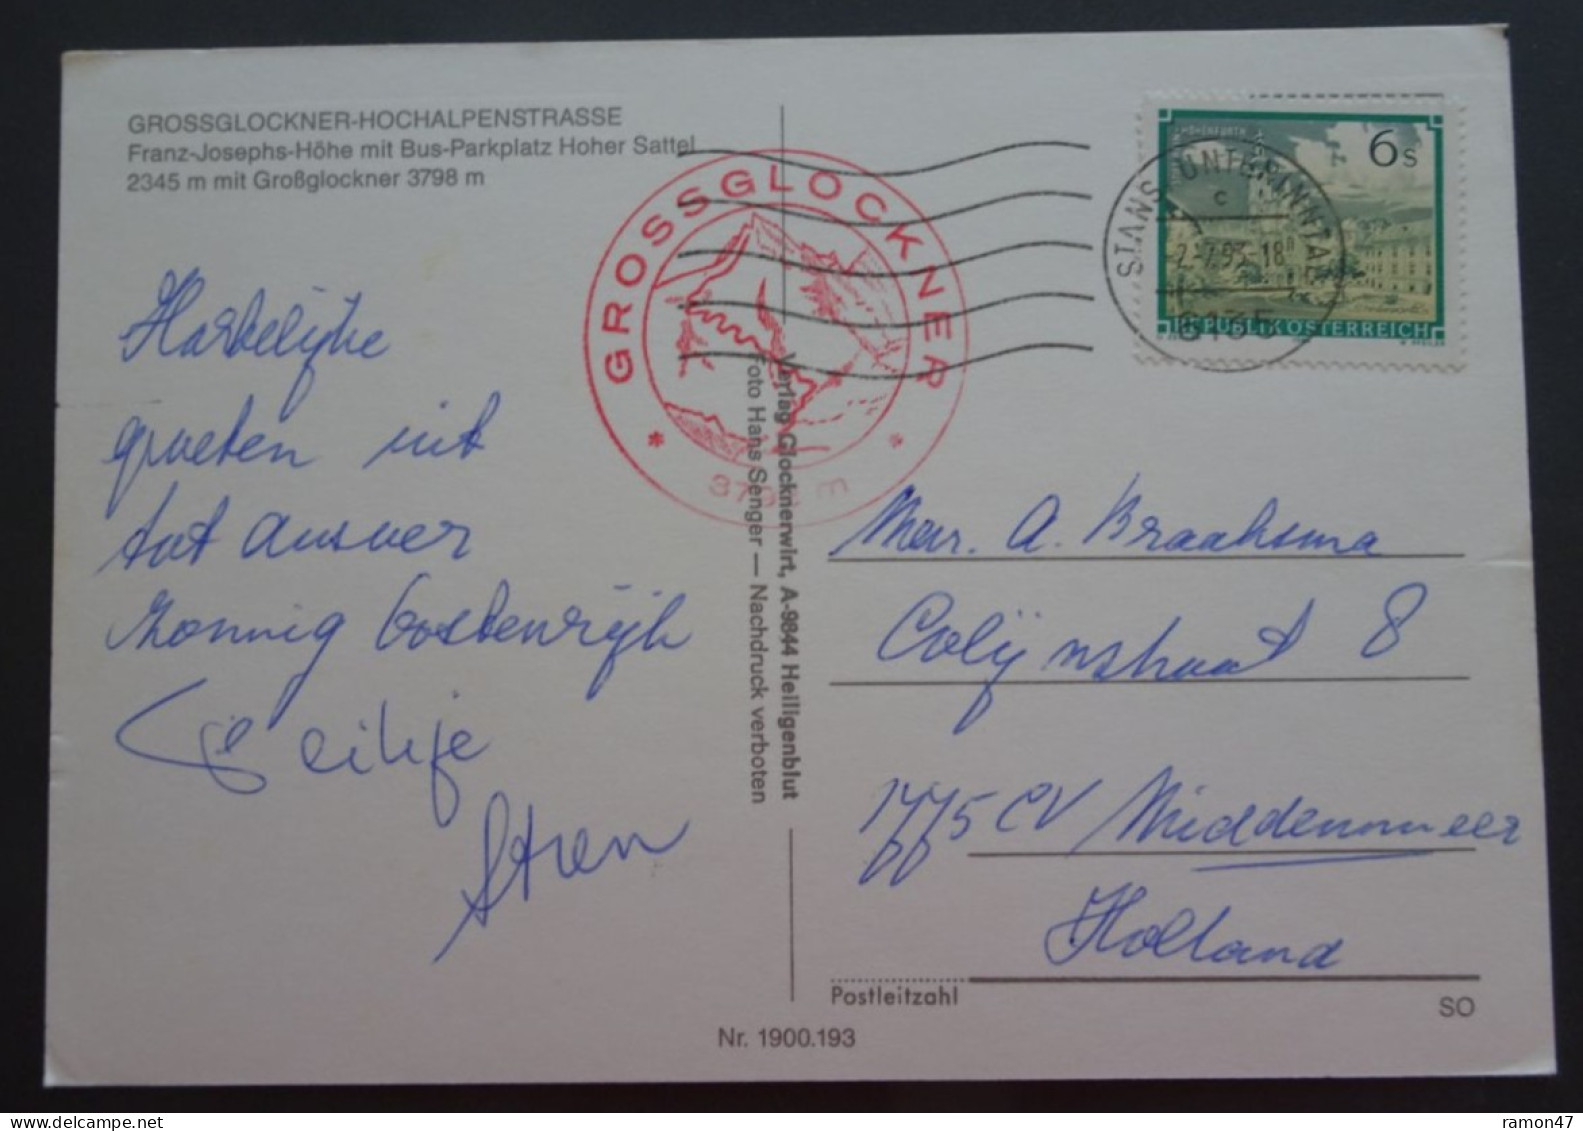 GROSSGLOCKNER-HOCHALPENSTRASSE
Franz-Josephs-Höhe mit Bus-Parkplatz Hoher Sattel
2345 m mit Großglockner 3798 m
Hartelijke
groeten uit
zonnig Oostenrijk
GROSSGLOCKNER
Verlag Glocknerwirt, A-9844 Heiligenblut
Foto Hans Senger — Nachdruck verboten
HOHENFURTH
6 S
REPUBLIK ÖSTERREICH
STANS, UNTERINNTAL
c
6135
A. Braaksma
Colijnstraat 8
1775 CV Middenmeer
Holland
Postleitzahl
SO
Nr. 1900.193
ramon47